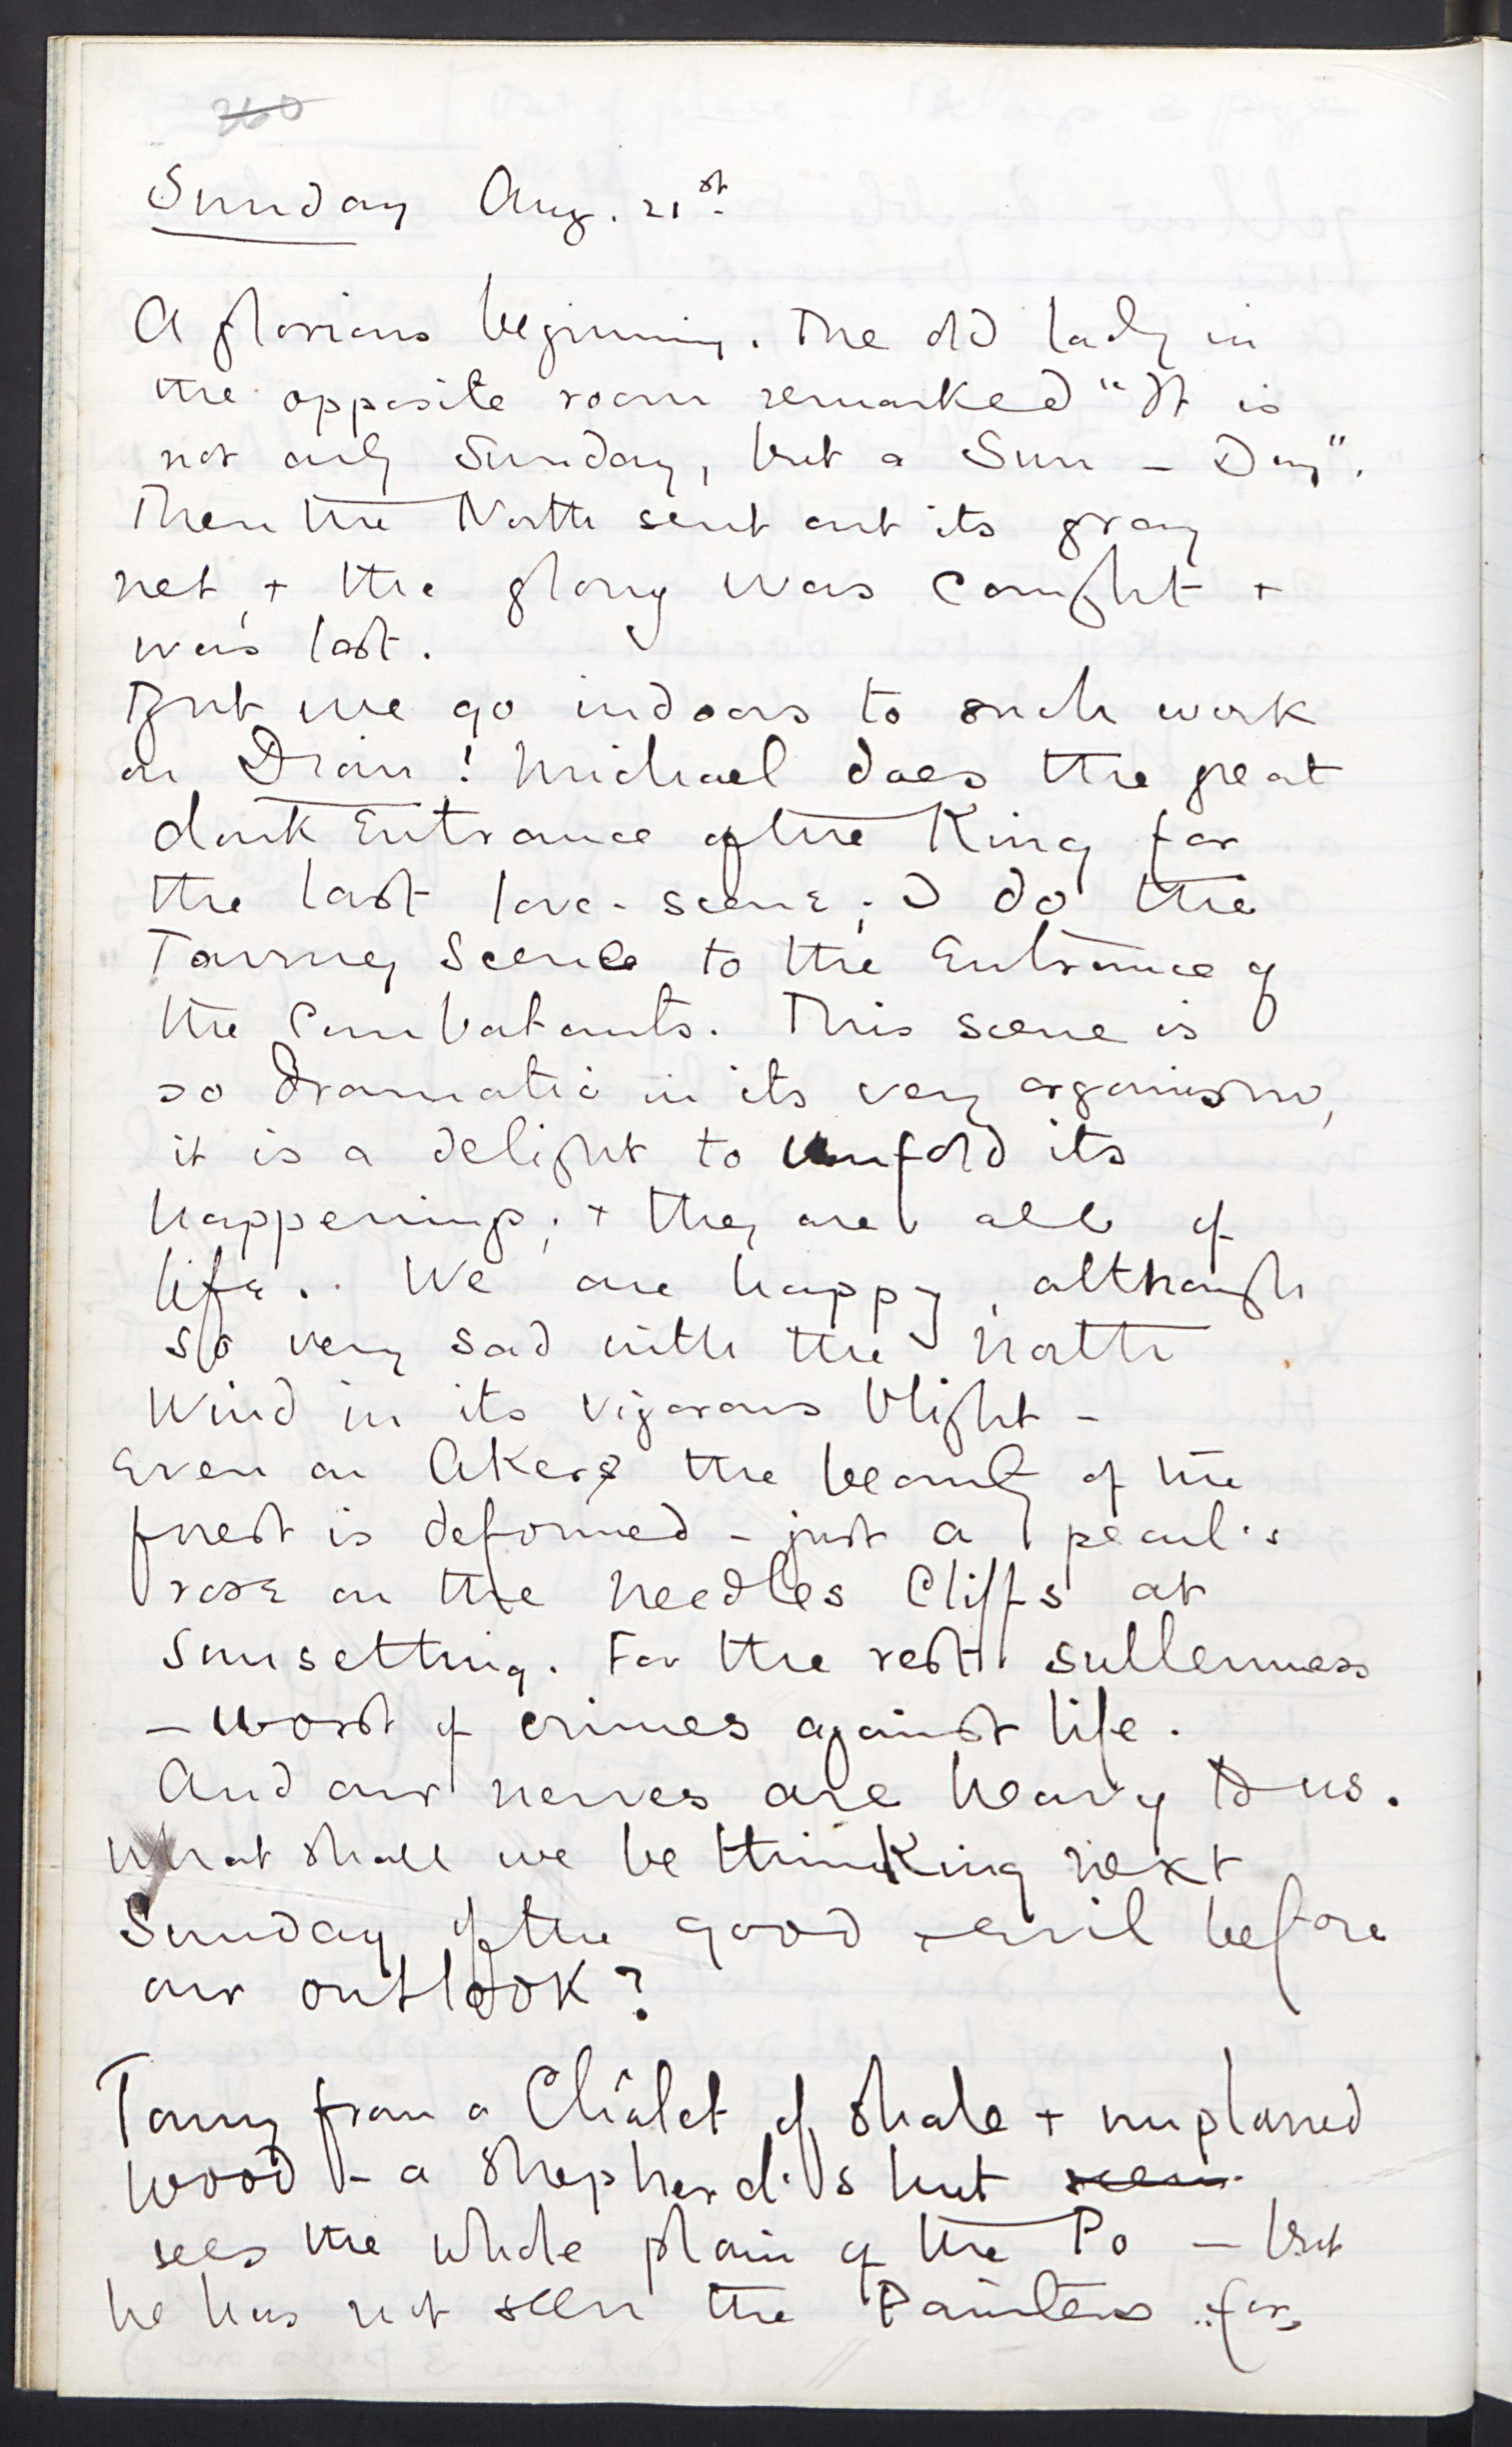 260
Sunday Aug. 21st
A glorious beginning. The old lady in
the opposite room remarked "It is
not only Sunday, but a Sun - Day".
Then the North sent out its gray
net, + the glory was caught +
was lost.
But we go indoors to such work
on Dian! Michael does the great
dark Entrance of the King for
the last love-scene; I do the
Tourney Scene to the Entrance of
the Combatants. This scene is
so dramatic in its very organism,
it is a delight to unfold its
happenings; + they are all of
life.. We are happy, although
so very sad with the North
Wind in its vigorous blight -
Even on the beauty of the
forest is deformed - just a pearl's
rose on the Needles Cliffs at
Sunsetting. For the rest sullenness
- worst of crimes against life.
And our nerves are heavy to us.
What shall we be thinking next
Sunday of the good + evil before
our outlook?
Tommy from a Châlet of shale + unplaned
wood - a Shepherd's hut seen
sees the whole plain of the Po - but
he has not seen the Painters for